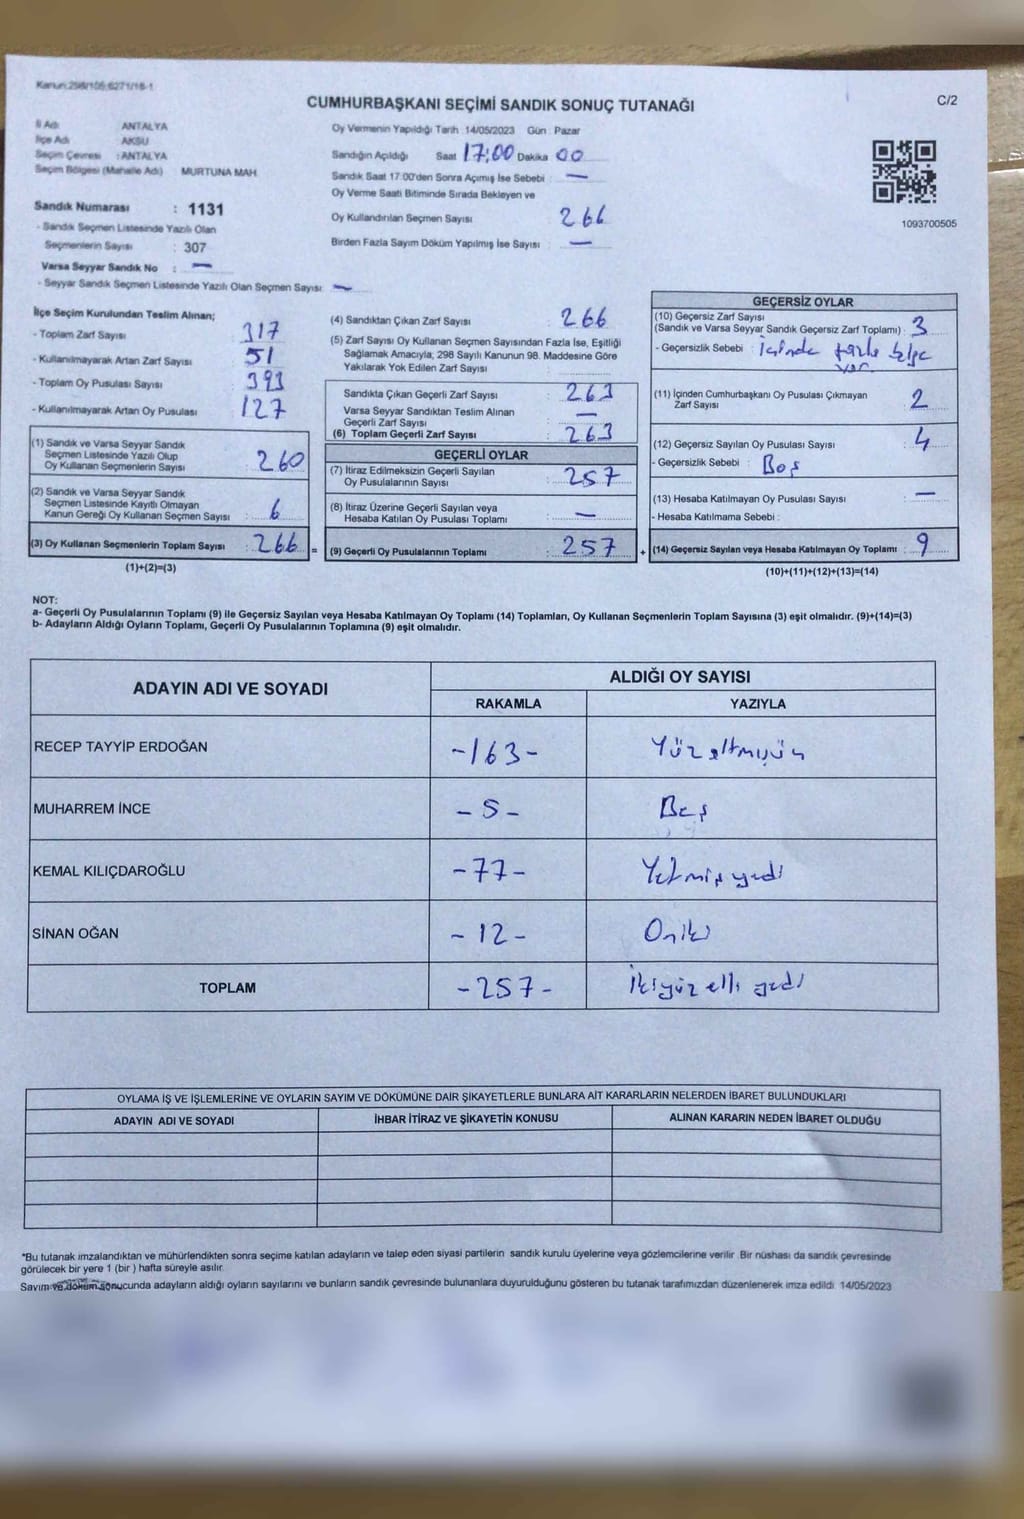 Kanun:298/105;6271/18-1
CUMHURBAŞKANI SEÇİMİ SANDIK SONUÇ TUTANAĞI
C/2
İl Adı : ANTALYA
İlçe Adı : AKSU
Seçim Çevresi : ANTALYA
Seçim Bölgesi (Mahalle Adı) MURTUNA MAH.
Sandık Numarası : 1131
- Sandık Seçmen Listesinde Yazılı Olan
Seçmenlerin Sayısı : 307
Varsa Seyyar Sandık No : —
- Seyyar Sandık Seçmen Listesinde Yazılı Olan Seçmen Sayısı: —
Oy Vermenin Yapıldığı Tarih 14/05/2023 Gün : Pazar
Sandığın Açıldığı Saat 17:00 Dakika 00
Sandık Saat 17:00'den Sonra Açımış İse Sebebi : —
Oy Verme Saati Bitiminde Sırada Bekleyen ve
Oy Kullandırılan Seçmen Sayısı : 266
Birden Fazla Sayım Döküm Yapılmış İse Sayısı : —
1093700505
İlçe Seçim Kurulundan Teslim Alınan;
- Toplam Zarf Sayısı : 317
- Kullanılmayarak Artan Zarf Sayısı : 51
- Toplam Oy Pusulası Sayısı : 393
- Kullanılmayarak Artan Oy Pusulası : 127
(1) Sandık ve Varsa Seyyar Sandık
Seçmen Listesinde Yazılı Olup
Oy Kullanan Seçmenlerin Sayısı : 260
(2) Sandık ve Varsa Seyyar Sandık
Seçmen Listesinde Kayıtlı Olmayan
Kanun Gereği Oy Kullanan Seçmen Sayısı : 6
(3) Oy Kullanan Seçmenlerin Toplam Sayısı : 266 =
(1)+(2)=(3)
(4) Sandıktan Çıkan Zarf Sayısı : 266
(5) Zarf Sayısı Oy Kullanan Seçmen Sayısından Fazla İse, Eşitliği
Sağlamak Amacıyla, 298 Sayılı Kanunun 98. Maddesine Göre
Yakılarak Yok Edilen Zarf Sayısı :
Sandıkta Çıkan Geçerli Zarf Sayısı : 263
Varsa Seyyar Sandıktan Teslim Alınan
Geçerli Zarf Sayısı : —
(6) Toplam Geçerli Zarf Sayısı : 263
GEÇERLİ OYLAR
(7) İtiraz Edilmeksizin Geçerli Sayılan
Oy Pusulalarının Sayısı : 257
(8) İtiraz Üzerine Geçerli Sayılan veya
Hesaba Katılan Oy Pusulası Toplamı : —
(9) Geçerli Oy Pusulalarının Toplamı : 257 +
GEÇERSİZ OYLAR
(10) Geçersiz Zarf Sayısı
(Sandık ve Varsa Seyyar Sandık Geçersiz Zarf Toplamı) : 3
- Geçersizlik Sebebi : İçinde fazla
var
(11) İçinden Cumhurbaşkanı Oy Pusulası Çıkmayan
Zarf Sayısı : 2
(12) Geçersiz Sayılan Oy Pusulası Sayısı : 4
- Geçersizlik Sebebi : Boş
(13) Hesaba Katılmayan Oy Pusulası Sayısı : —
- Hesaba Katılmama Sebebi :
(14) Geçersiz Sayılan veya Hesaba Katılmayan Oy Toplamı : 9
(10)+(11)+(12)+(13)=(14)
NOT:
a- Geçerli Oy Pusulalarının Toplamı (9) ile Geçersiz Sayılan veya Hesaba Katılmayan Oy Toplamı (14) Toplamları, Oy Kullanan Seçmenlerin Toplam Sayısına (3) eşit olmalıdır. (9)+(14)=(3)
b- Adayların Aldığı Oyların Toplamı, Geçerli Oy Pusulalarının Toplamına (9) eşit olmalıdır.
ADAYIN ADI VE SOYADI ALDIĞI OY SAYISI
RAKAMLA YAZIYLA
RECEP TAYYİP ERDOĞAN -163- Yüzaltmışüç
MUHARREM İNCE -5- Beş
KEMAL KILIÇDAROĞLU -77- Yetmişyedi
SİNAN OĞAN -12- Oniki
TOPLAM -257- İkiyüz elli yedi
OYLAMA İŞ VE İŞLEMLERİNE VE OYLARIN SAYIM VE DÖKÜMÜNE DAİR ŞİKAYETLERLE BUNLARA AİT KARARLARIN NELERDEN İBARET BULUNDUKLARI
ADAYIN ADI VE SOYADI İHBAR İTİRAZ VE ŞİKAYETİN KONUSU ALINAN KARARIN NEDEN İBARET OLDUĞU
*Bu tutanak imzalandıktan ve mühürlendikten sonra seçime katılan adayların ve talep eden siyasi partilerin sandık kurulu üyelerine veya gözlemcilerine verilir. Bir nüshası da sandık çevresinde
görülecek bir yere 1 (bir ) hafta süreyle asılır.
Sayım ve döküm sonucunda adayların aldığı oyların sayılarını ve bunların sandık çevresinde bulunanlara duyurulduğunu gösteren bu tutanak tarafımızdan düzenlenerek imza edildi. 14/05/2023